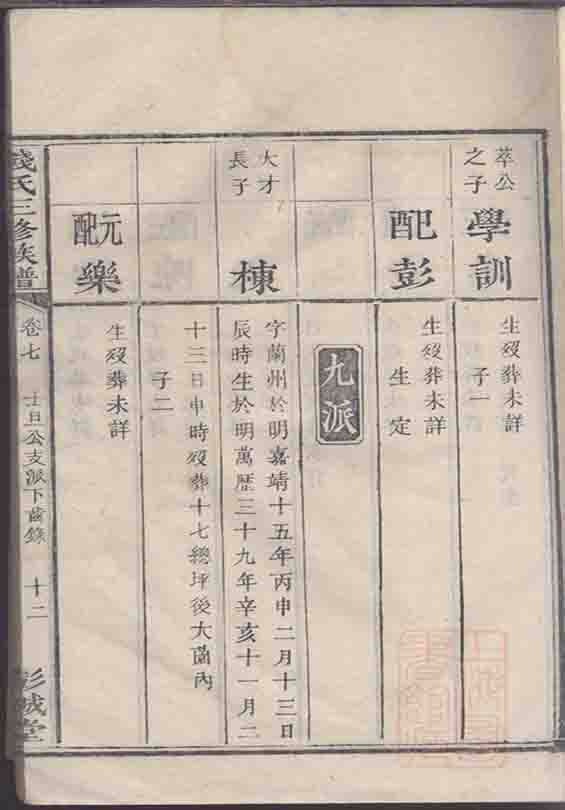 萃公
之子
學訓
生歿葬未詳
子一
配彭
生歿葬未詳
生定
九派
大才
長子
棟
字蘭州於明嘉靖十五年丙申二月十三日
辰時生於明萬歷三十九年辛亥十一月二
十二日申時歿葬十七總坪後大菌內
子二
元配
樂
生歿葬未詳
錢氏三修族譜
卷七
士旦公支派下齒錄
十二
彭城堂